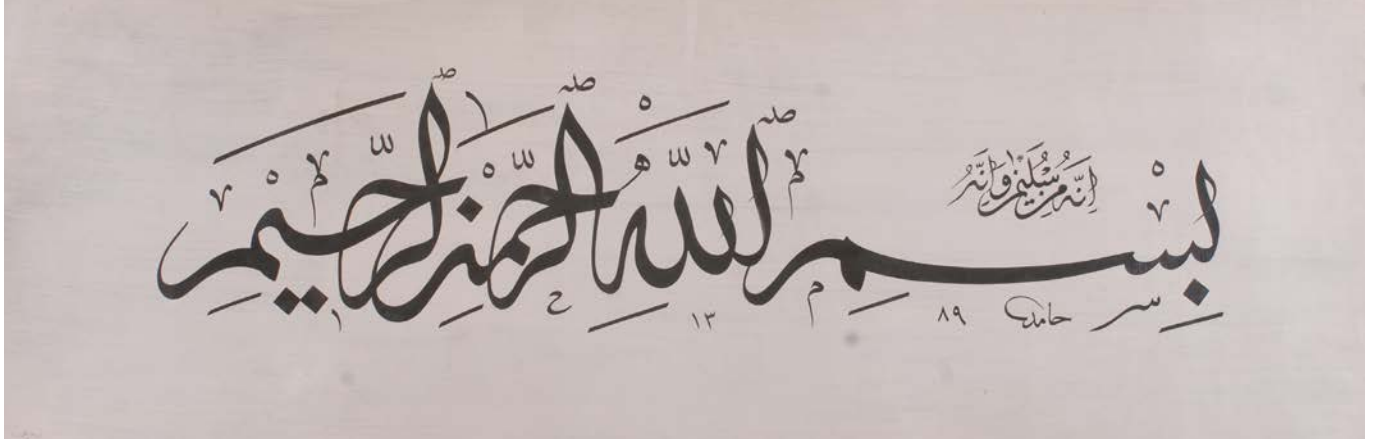 إِنَّهُ مِنْ سُلَيْمٰنَ وَإِنَّهُ
بِسْمِ اللّٰهِ الرَّحْمٰنِ الرَّحِيمِ
حامد ٨٩
١٣